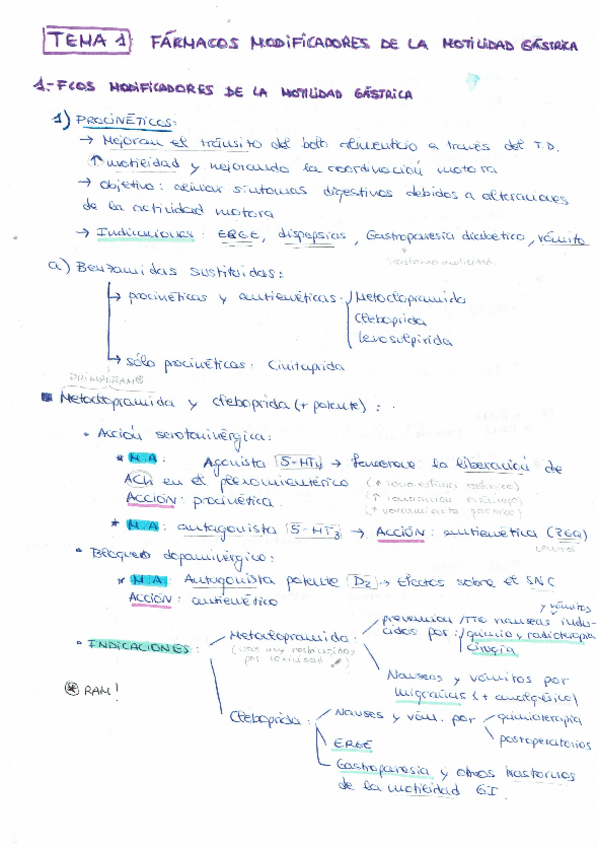 TEMA 1 FÁRMACOS MODIFICADORES DE LA MOTILIDAD GÁSTRICA
1.- FCOS MODIFICADORES DE LA MOTILIDAD GÁSTRICA
1) PROCINÉTICOS:
→ Mejoran el tránsito del bolo alimenticio a través del T.D.
↑ motilidad y mejorando la coordinación motora
→ objetivo: aliviar síntomas digestivos debidos a alteraciones
de la actividad motora
→ Indicaciones: ERGE, dispepsias, Gastroparesia diabética, vómito
a) Benzamidas sustituidas:
→ procinéticas y antieméticas: Metoclopramida
Cleboprida
Levosulpirida
→ sólo procinéticas: Cinitaprida
PRIMPERAN®
Metoclopramida y cleboprida (+ potente):
• Acción serotoninérgica:
* M.A: Agonista 5-HT4 → Favorece la liberación de
ACh en el plexo mientérico
ACCIÓN: procinética
* M.A: antagonista 5-HT3 → ACCIÓN: antiemética (ZGQ)
• Bloqueo dopaminérgico:
* M.A: Antagonista potente D2 → Efectos sobre el SNC
ACCIÓN: antiemético
y vómitos
• INDICACIONES: Metoclopramida: prevención /TTO nauseas indu-
cidos por: quimio y radioterapia
cirugía
(usos muy restringidos
por toxicidad)
Nauseas y vómitos por
migrañas (+ analgésico)
* RAM!
Cleboprida: Nauseas y vóm. por quimioterapia
postoperatorios
ERGE
Gastroparesia y otros trastornos
de la motilidad GI